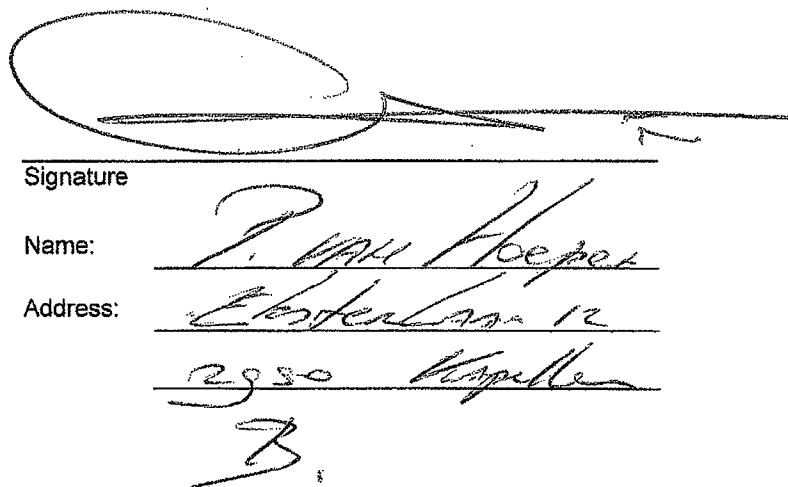 Signature
Name: P. van Hoeper
Address: Eksterlaan 12
2950 Kapellen
B.